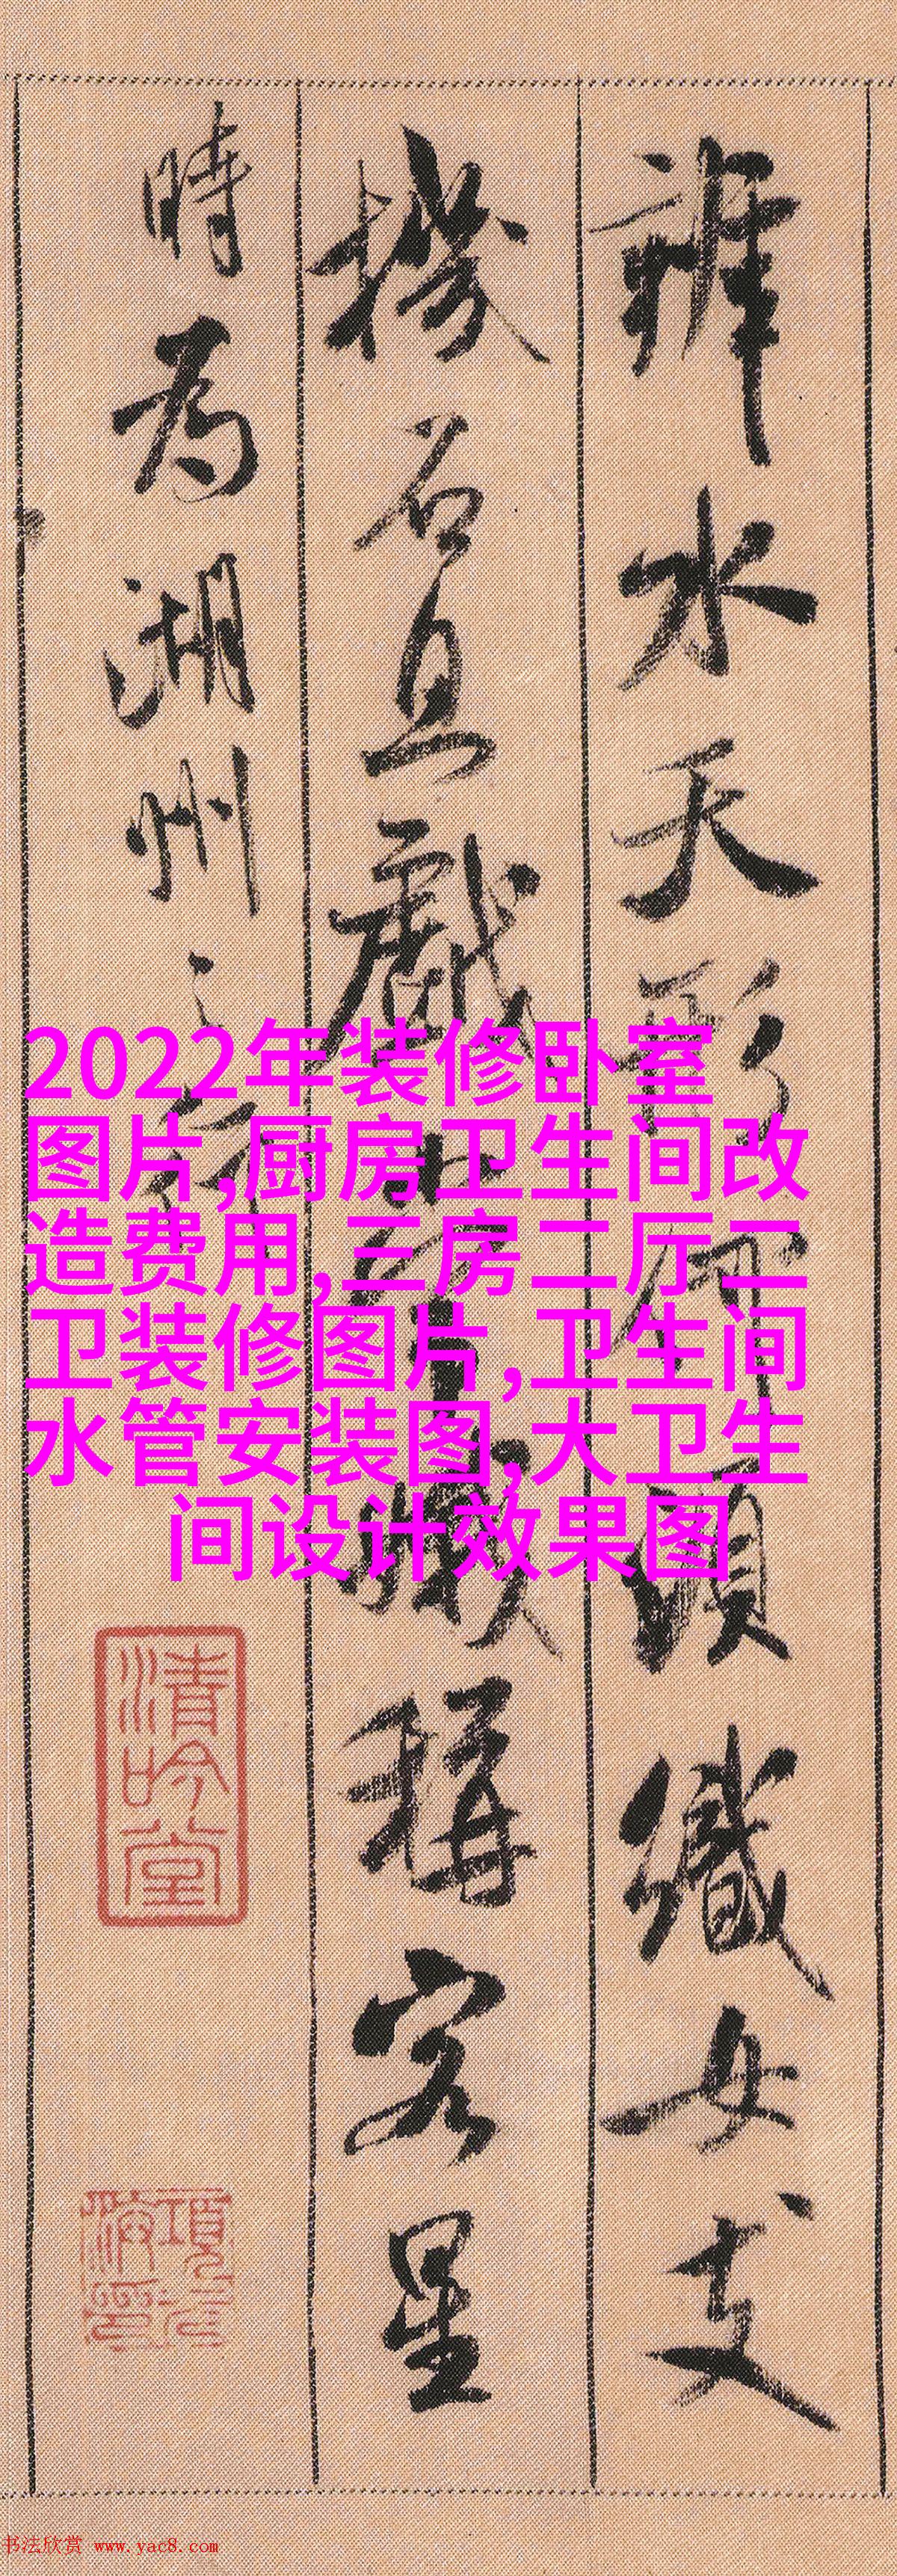 辨水天形何須織女支
機石且戲常娥稱客星
時為湖州之行
2022年装修卧室
图片,厨房卫生间改
造费用,三房二厅二
卫装修图片,卫生间
水管安装图,大卫生
间设计效果图
清吟堂
书法欣赏 www.yac8.com